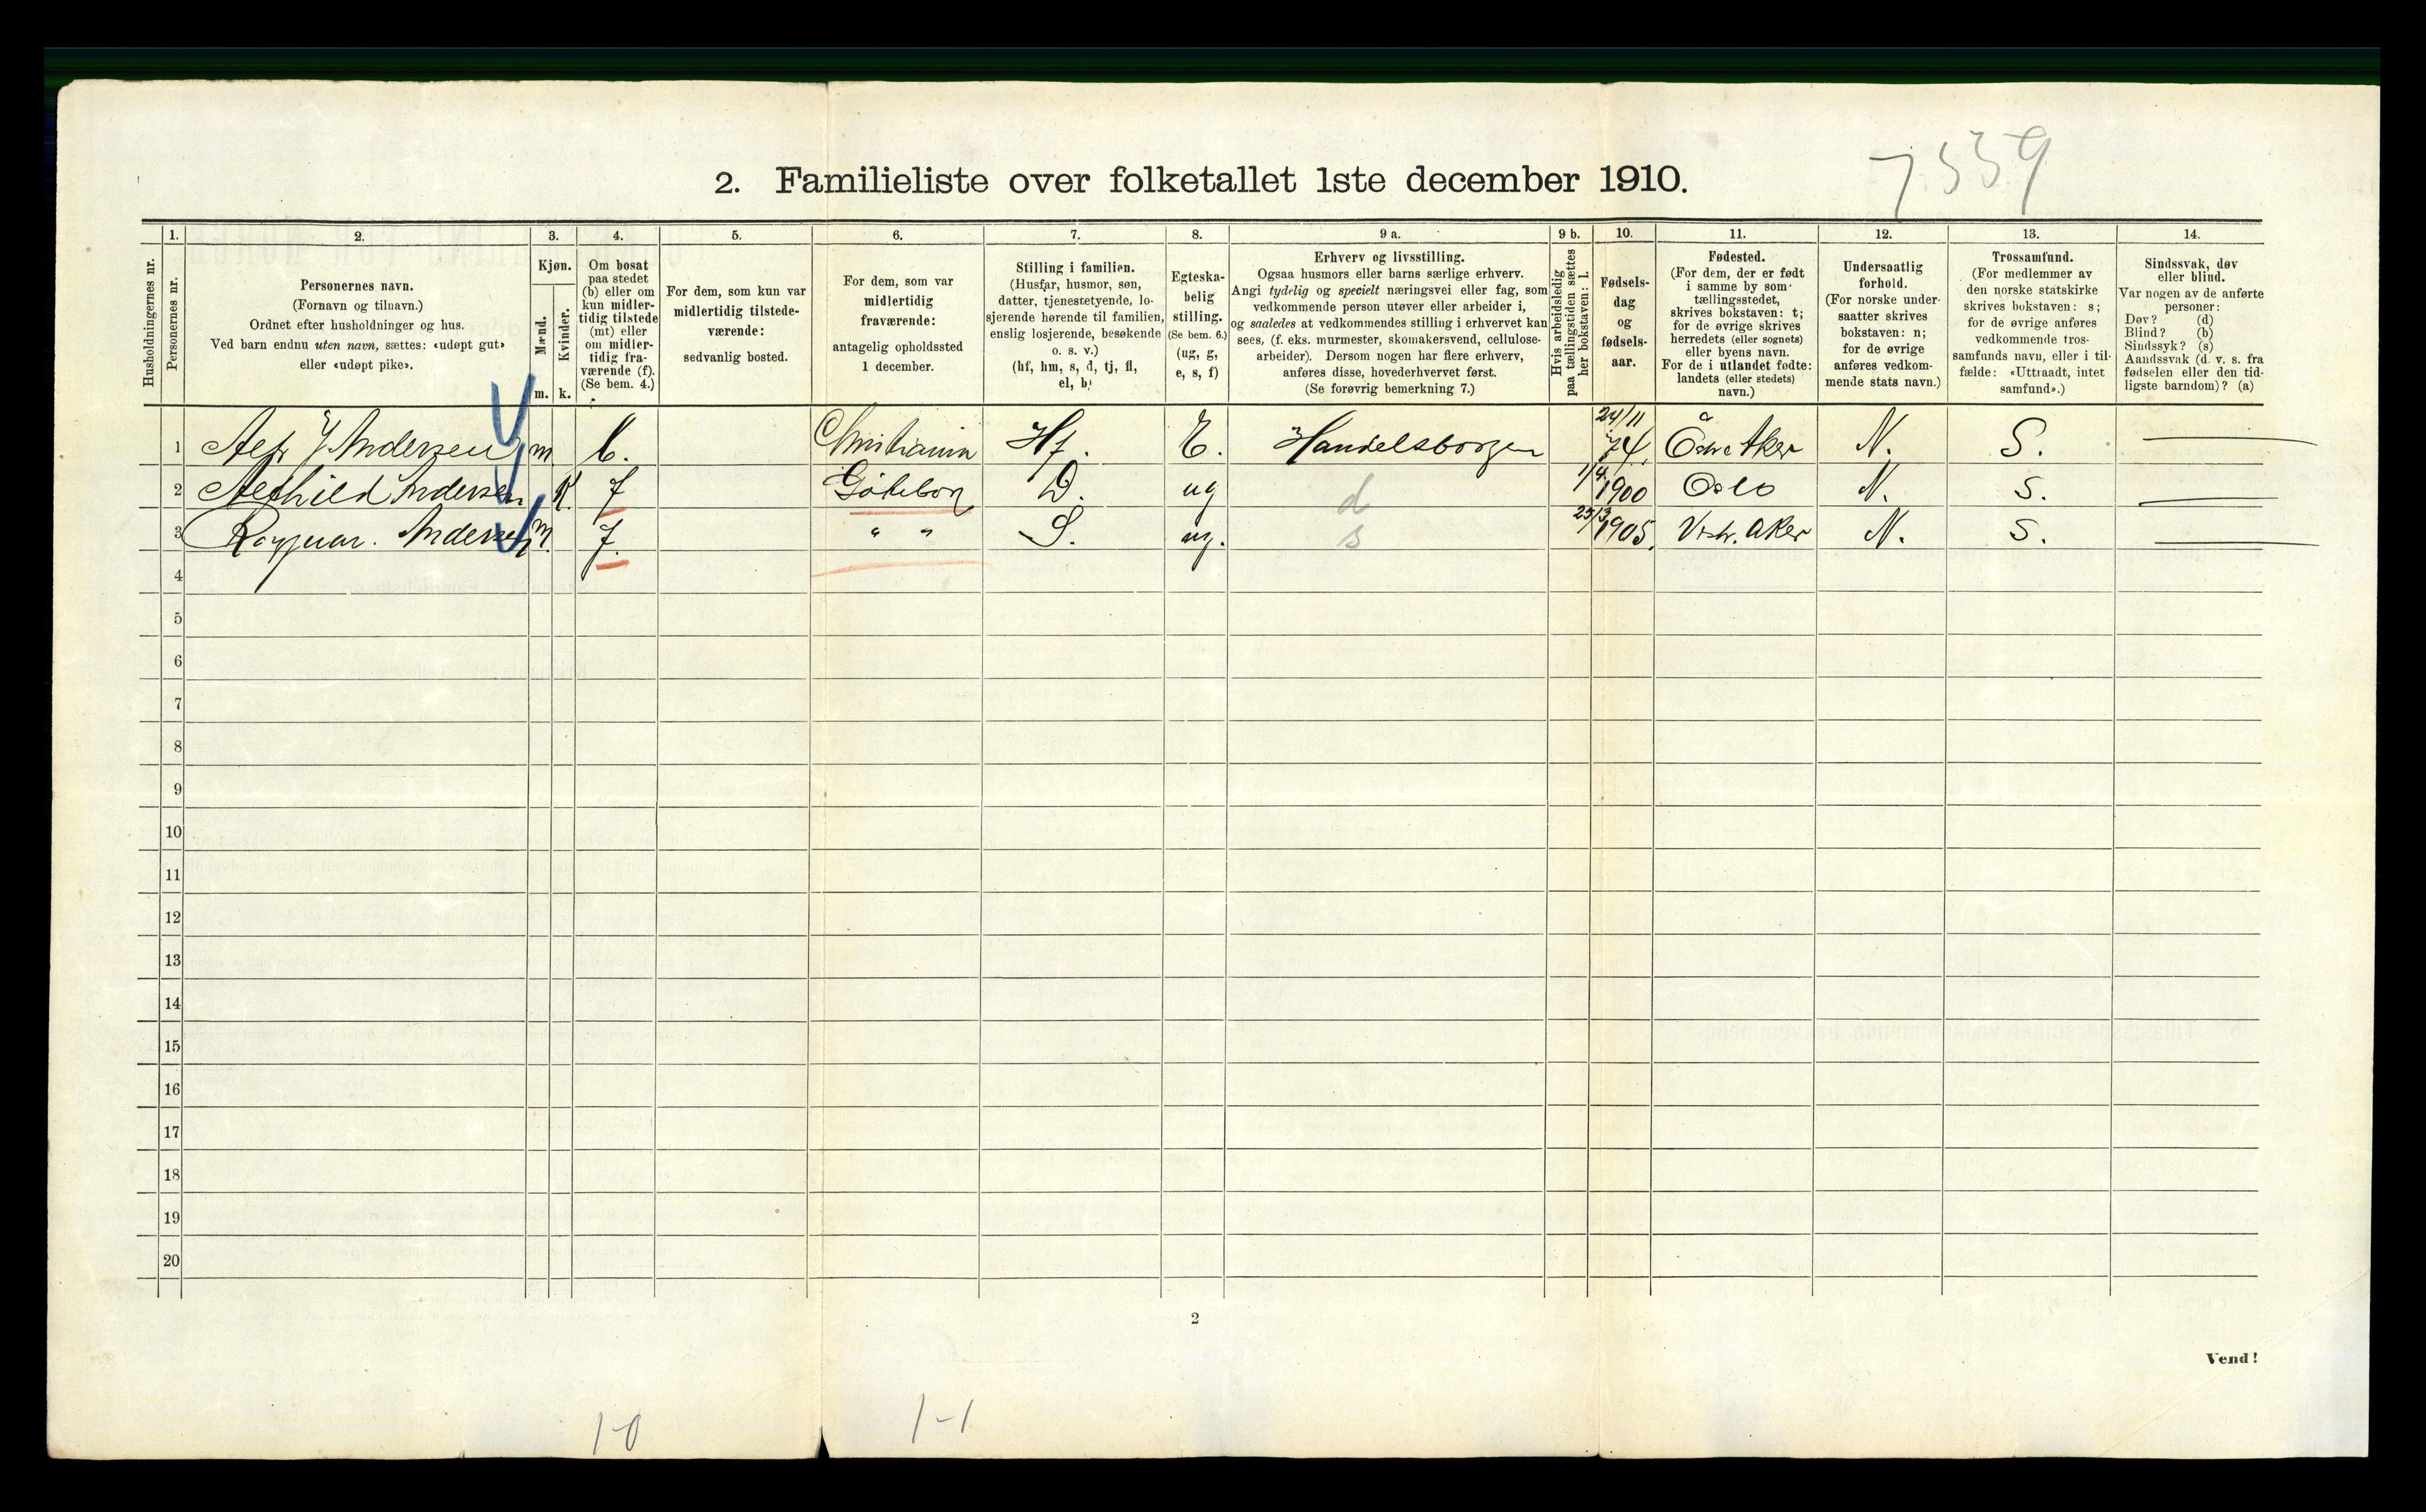 7339
2. Familieliste over folketallet 1ste december 1910.
Husholdningernes nr.
1.
Personernes nr.
2.
Personernes navn.
(Fornavn og tilnavn.)
Ordnet efter husholdninger og hus.
Ved barn endnu uten navn, sættes: «udøpt gut»
eller «udøpt pike».
3.
Kjøn.
Mænd.
Kvinder.
m. k.
4.
Om bosat
paa stedet
(b) eller om
kun midler-
tidig tilstede
(mt) eller
om midler-
tidig fra-
værende (f).
(Se bem. 4.)
5.
For dem, som kun var
midlertidig tilstede-
værende:
sedvanlig bosted.
6.
For dem, som var
midlertidig
fraværende:
antagelig opholdssted
1 december.
7.
Stilling i familien.
(Husfar, husmor, søn,
datter, tjenestetyende, lo-
sjerende hørende til familien,
enslig losjerende, besøkende
o. s. v.)
(hf, hm, s, d, tj, fl,
el, b)
8.
Egteska-
belig
stilling.
(Se bem. 6.)
(ug, g,
e, s, f)
9 a.
Erhverv og livsstilling.
Ogsaa husmors eller barns særlige erhverv.
Angi tydelig og specielt næringsvei eller fag, som
vedkommende person utøver eller arbeider i,
og saaledes at vedkommendes stilling i erhvervet kan
sees, (f. eks. murmester, skomakersvend, cellulose-
arbeider). Dersom nogen har flere erhverv,
anføres disse, hovederhvervet først.
(Se forøvrig bemerkning 7.)
9 b.
Hvis arbeidsledig
paa tællingstiden sættes
her bokstaven: l.
10.
Fødsels-
dag
og
fødsels-
aar.
11.
Fødested.
(For dem, der er født
i samme by som
tællingsstedet,
skrives bokstaven: t;
for de øvrige skrives
herredets (eller sognets)
eller byens navn.
For de i utlandet fødte:
landets (eller stedets)
navn.)
12.
Undersaatlig
forhold.
(For norske under-
saatter skrives
bokstaven: n;
for de øvrige
anføres vedkom-
mende stats navn.)
13.
Trossamfund.
(For medlemmer av
den norske statskirke
skrives bokstaven: s;
for de øvrige anføres
vedkommende tros-
samfunds navn, eller i til-
fælde: «Uttraadt, intet
samfund».)
14.
Sindssvak, døv
eller blind.
Var nogen av de anførte
personer:
Døv? (d)
Blind? (b)
Sindssyk? (s)
Aandssvak (d. v. s. fra
fødselen eller den tid-
ligste barndom)? (a)
1 Andersen m b. Christiania Hf. E. Handelsborger 24/11 74. Aker N. S.
2 Alfhild Andersen K. f Göteborg D. ug d 1/4 1900 Oslo N. S.
3 Ragnar. Andersen m. f. " " S. ug. s 25/3 1905. Vestr. Aker N. S.
4
5
6
7
8
9
10
11
12
13
14
15
16
17
18
19
20
2
Vend!
1-0
1-1